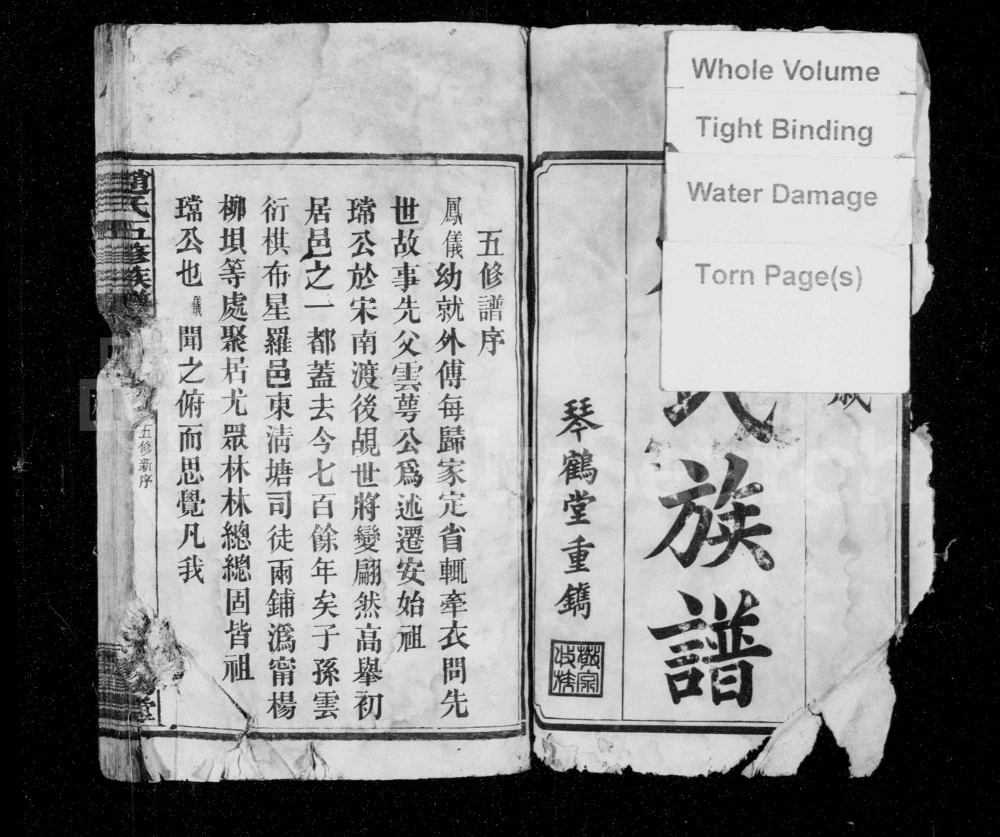 Whole Volume
Tight Binding
Water Damage
Torn Page(s)
歲
氏族譜
琴鶴堂重鐫
五修譜序
鳳儀幼就外傅每歸家定省輒牽衣問先
世故事先父雲萼公爲述遷安始祖
璫公於宋南渡後覘世將變翩然高舉初
居邑之一都蓋去今七百餘年矣子孫雲
衍棋布星羅邑東淸塘司徒兩鋪潙甯楊
柳垻等處聚居尤眾林林總總固皆祖
璫公也儀聞之俯而思覺凡我
趙氏五修族譜
五修新序
堂